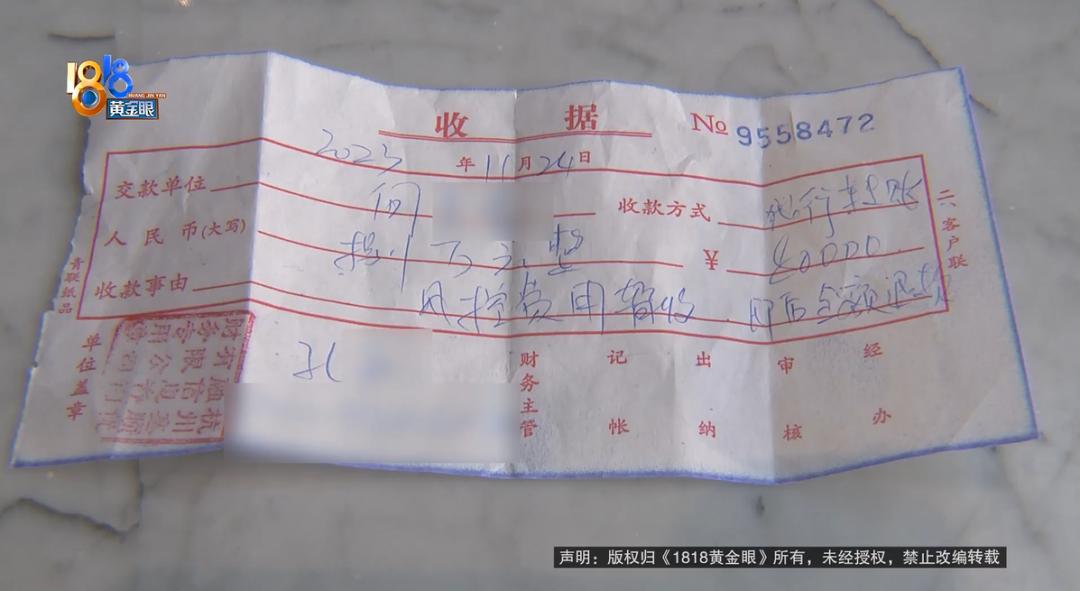 1818
HUANG JIN YAN
黄金眼
收 据 № 9558472
2023年11月24日
交款单位 何 收款方式 银行转账
人民币(大写) 捌万元整 ¥ 80000
收款事由 风控费用暂收、即后全额退款
二、客户联
青联纸品
单位盖章
财务主管 记帐 出纳 审核 经办
孔
杭州
有限公司
财务专用章
声明：版权归《1818黄金眼》所有，未经授权，禁止改编转载